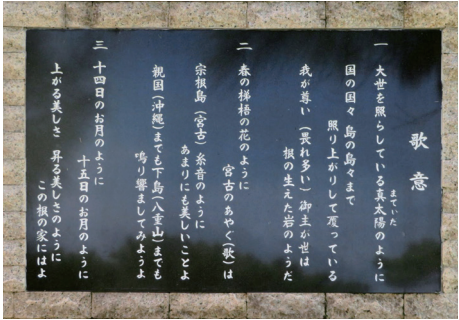 歌意
一 大世を照らしている真太陽のように
までいた
国の国々 島の島々まで
照り上がりして覆っている
我が尊い（畏れ多い）御主が世は
根の生えた岩のようだ
二 春の梯梧の花のように
宮古のあやぐ（歌）は
宗根島（宮古）糸音のように
あまりにも美しいことよ
親国（沖縄）までも下島（八重山）までも
鳴り響ましてみようよ
三 十四日のお月のように
十五日のお月のように
上がる美しさ 昇る美しさのように
この根の家にはよ